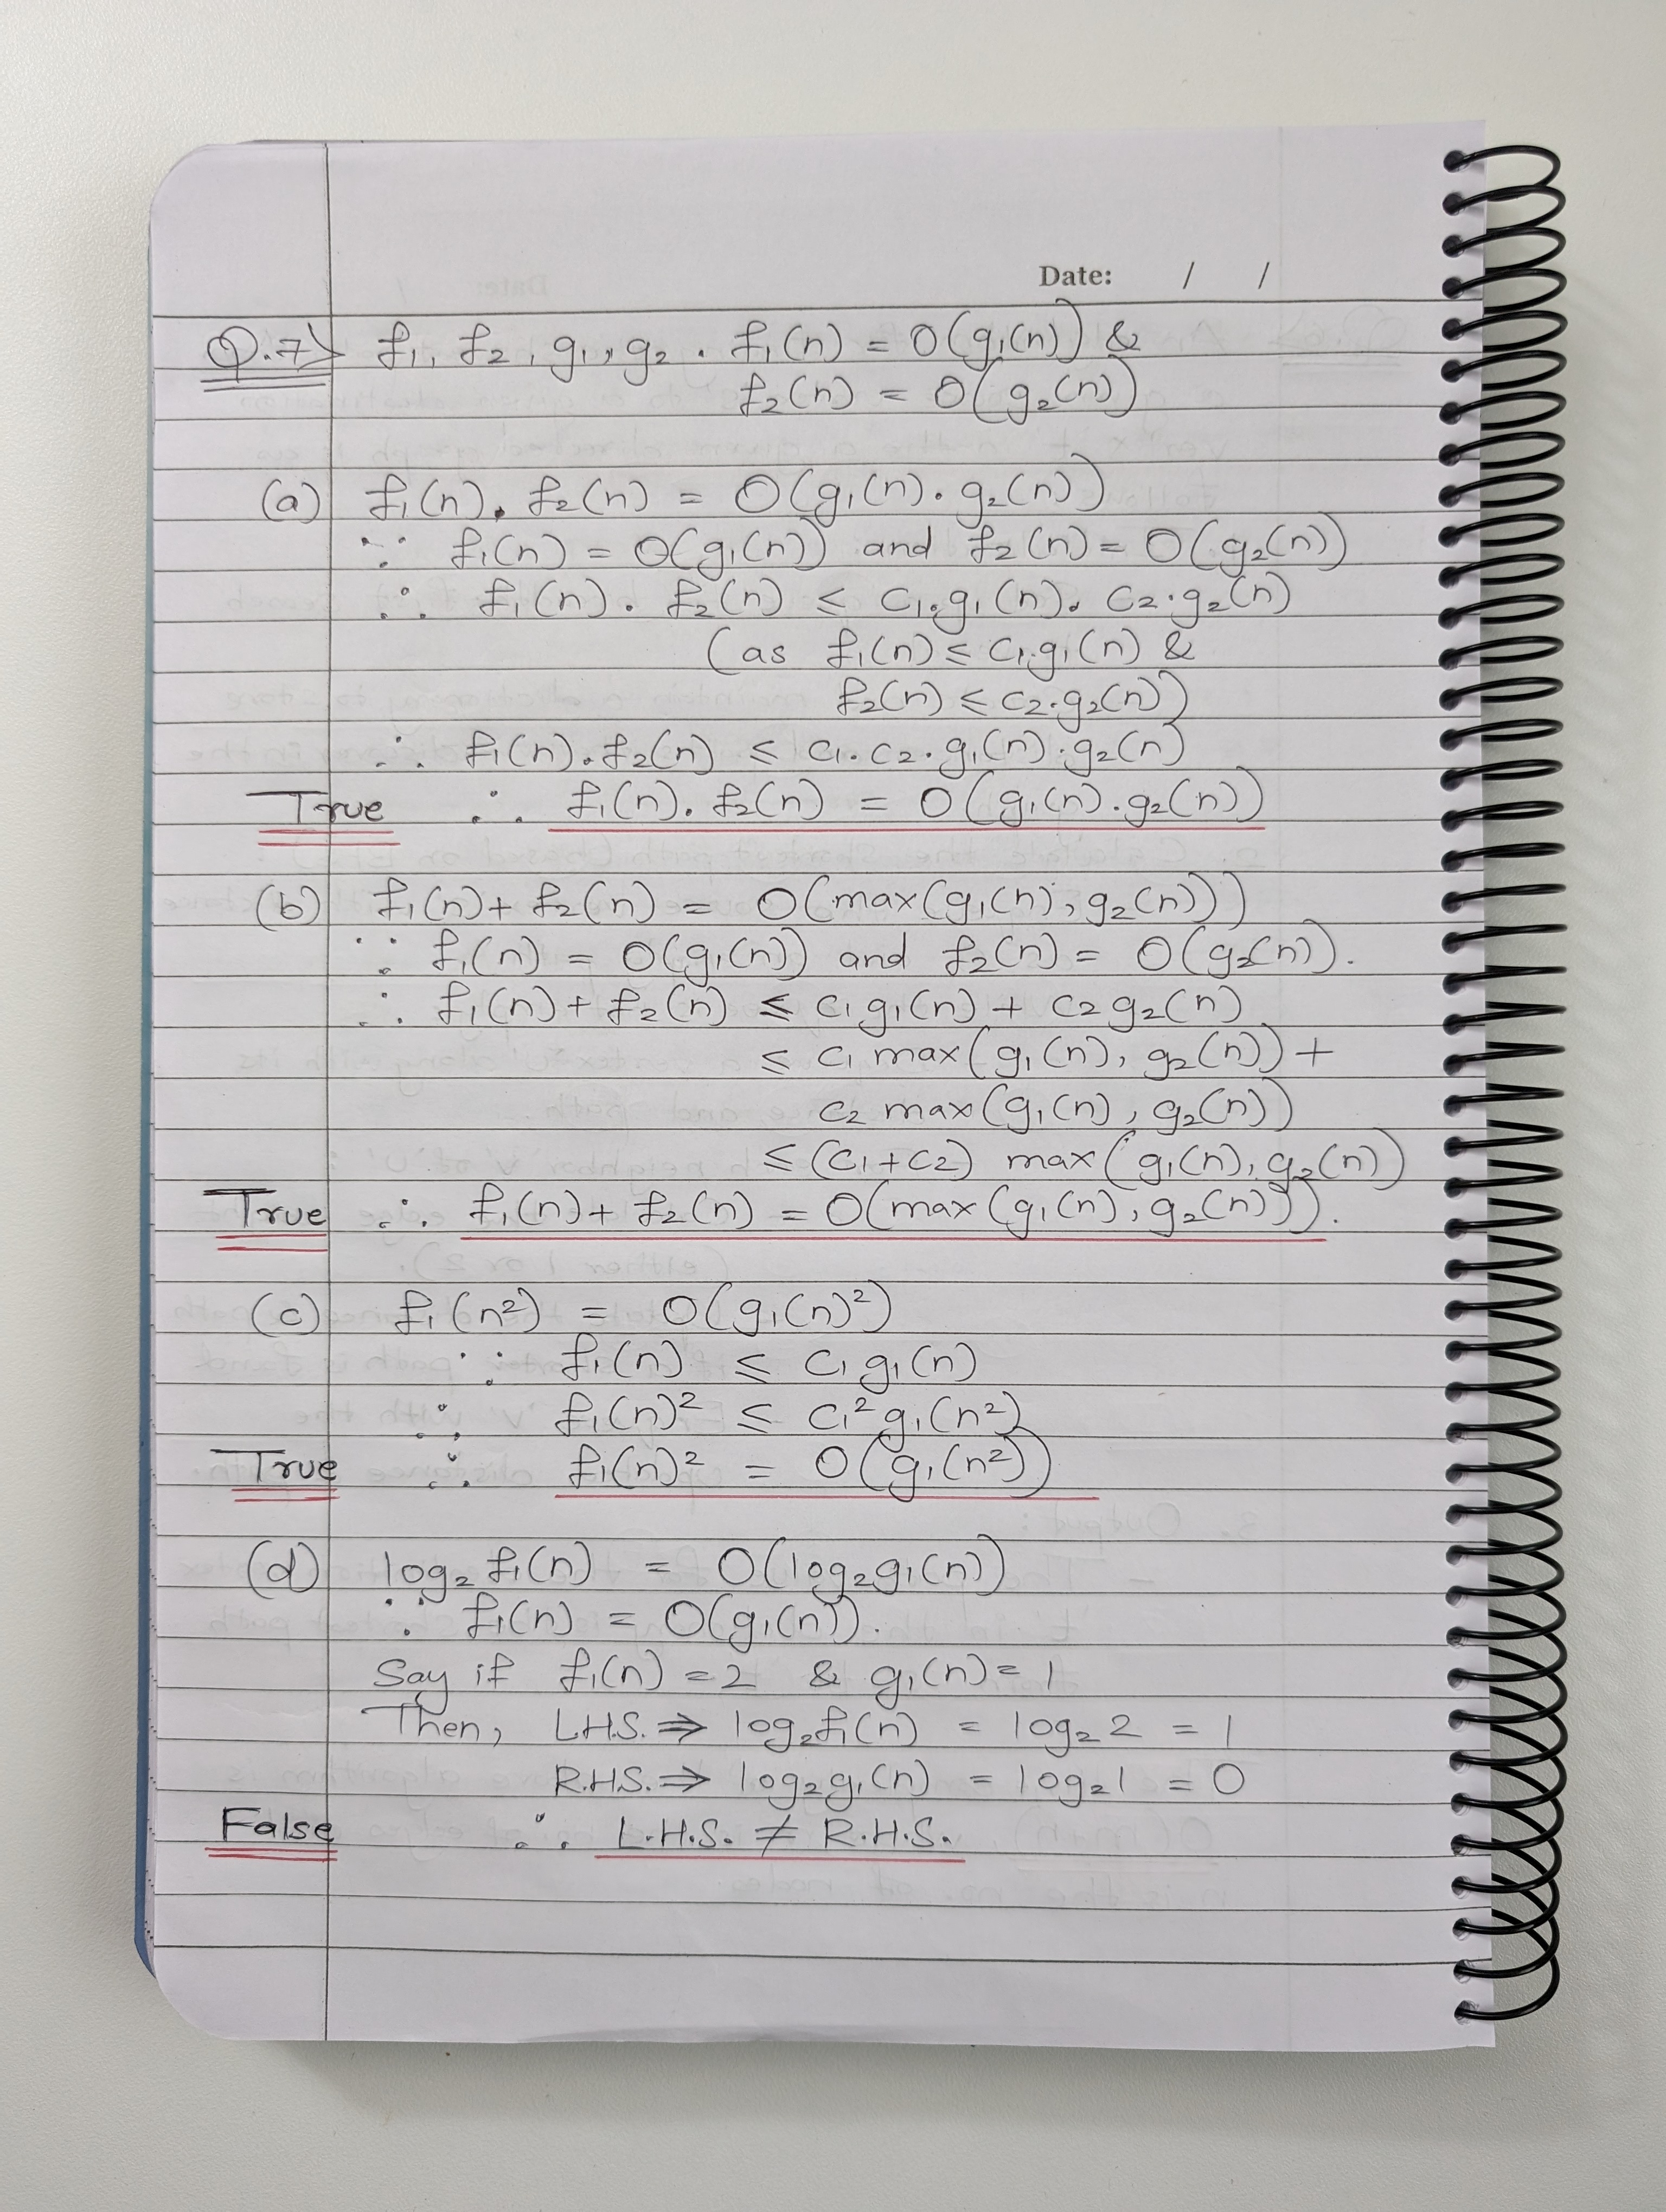 Date: / /
Q.7> f₁, f₂, g₁, g₂. f₁(n) = O(g₁(n)) &
f₂(n) = O(g₂(n))
(a) f₁(n). f₂(n) = O(g₁(n). g₂(n))
∵ f₁(n) = O(g₁(n)) and f₂(n) = O(g₂(n))
∴ f₁(n). f₂(n) ≤ c₁.g₁(n). c₂.g₂(n)
(as f₁(n) ≤ c₁.g₁(n) &
f₂(n) ≤ c₂.g₂(n))
∴ f₁(n).f₂(n) ≤ c₁.c₂.g₁(n).g₂(n)
True ∴ f₁(n). f₂(n) = O(g₁(n).g₂(n))
(b) f₁(n)+ f₂(n) = O(max(g₁(n), g₂(n)))
∵ f₁(n) = O(g₁(n)) and f₂(n) = O(g₂(n)).
∴ f₁(n)+ f₂(n) ≤ c₁g₁(n) + c₂g₂(n)
≤ c₁ max(g₁(n), g₂(n)) +
c₂ max(g₁(n), g₂(n))
≤ (c₁+c₂) max(g₁(n), g₂(n))
True ∴ f₁(n)+ f₂(n) = O(max(g₁(n), g₂(n))).
(c) f₁(n²) = O(g₁(n)²)
∵ f₁(n) ≤ c₁g₁(n)
∴ f₁(n)² ≤ c₁²g₁(n²)
True ∴ f₁(n)² = O(g₁(n²))
(d) log₂ f₁(n) = O(log₂g₁(n))
∵ f₁(n) = O(g₁(n)).
Say if f₁(n) = 2 & g₁(n) = 1
Then, L.H.S. ⇒ log₂f₁(n) = log₂ 2 = 1
R.H.S. ⇒ log₂g₁(n) = log₂1 = 0
False ∴ L.H.S. ≠ R.H.S.